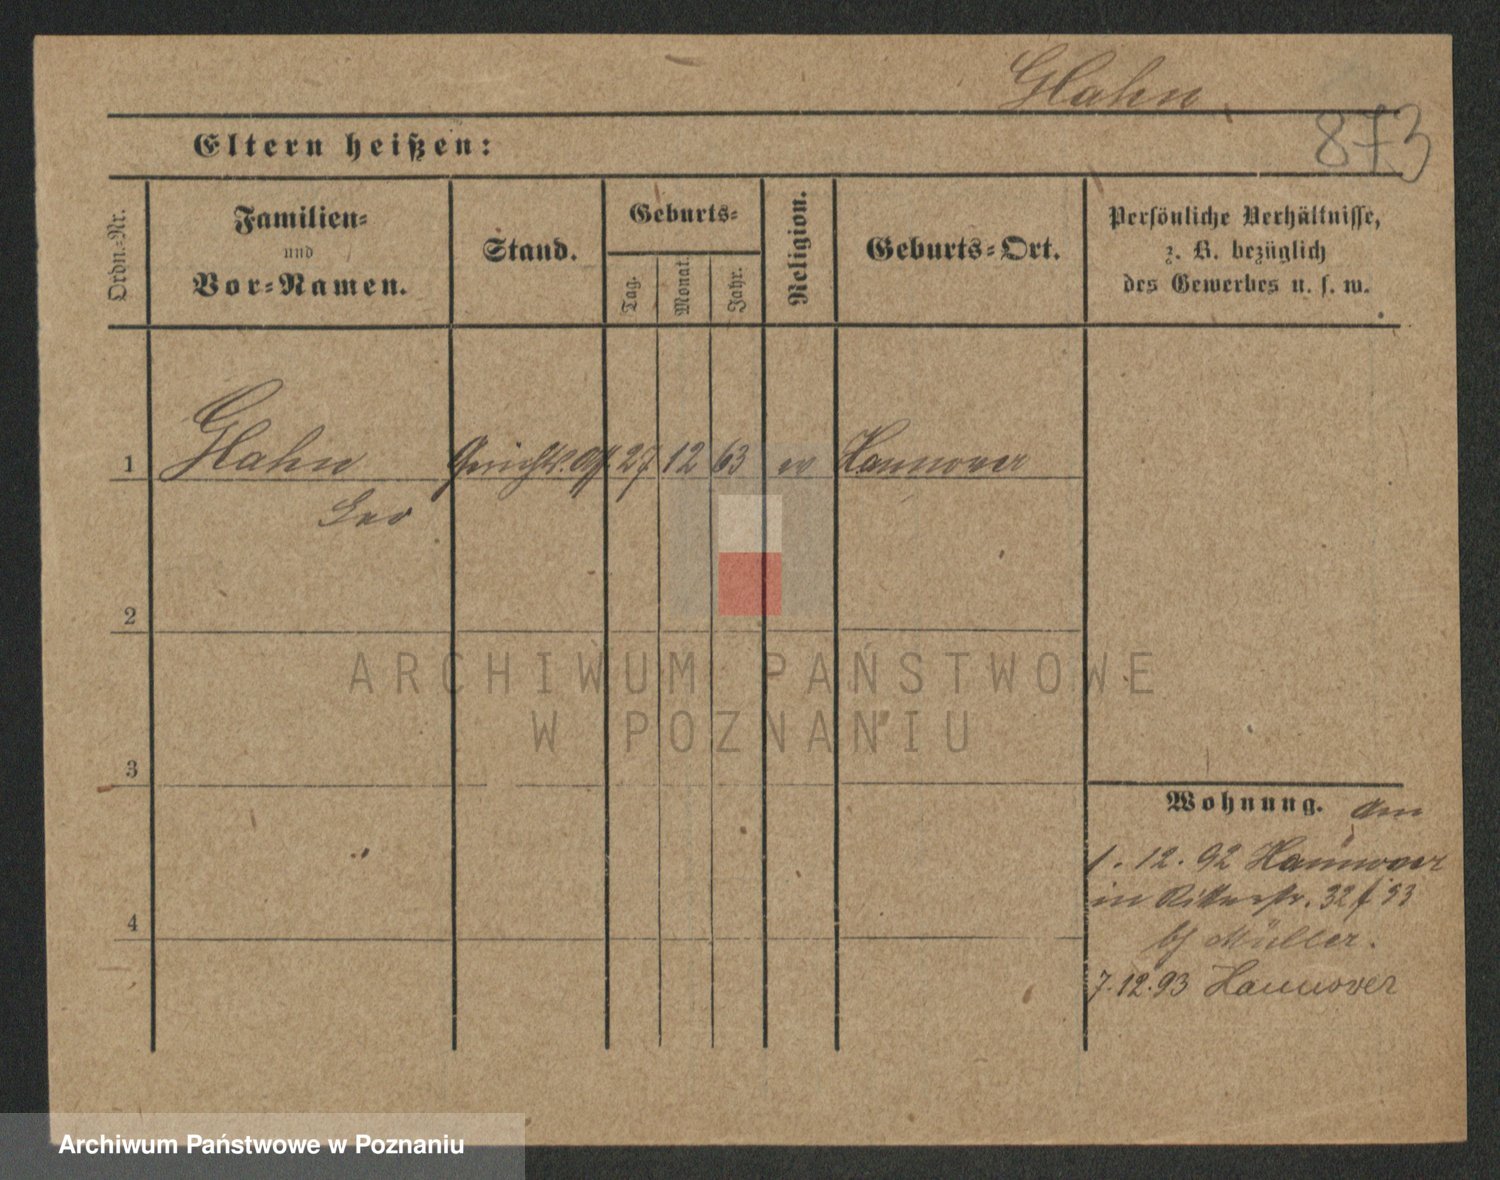 Hahn
873
Eltern heißen:
Ordn.-Nr.
Familien-
und
Vor-Namen.
Stand.
Geburts-
Tag.
Monat.
Jahr.
Religion.
Geburts-Ort.
Persönliche Verhältnisse,
z. B. bezüglich
des Gewerbes u. s. w.
1 Hahn 27 12 63 ev Hannover
Leo
2
3
4
Wohnung. am
1. 12. 92 Hannover
in Ritterstr. 32
Müller.
7.12.93 Hannover
ARCHIWUM PAŃSTWOWE
W POZNANIU
Archiwum Państwowe w Poznaniu